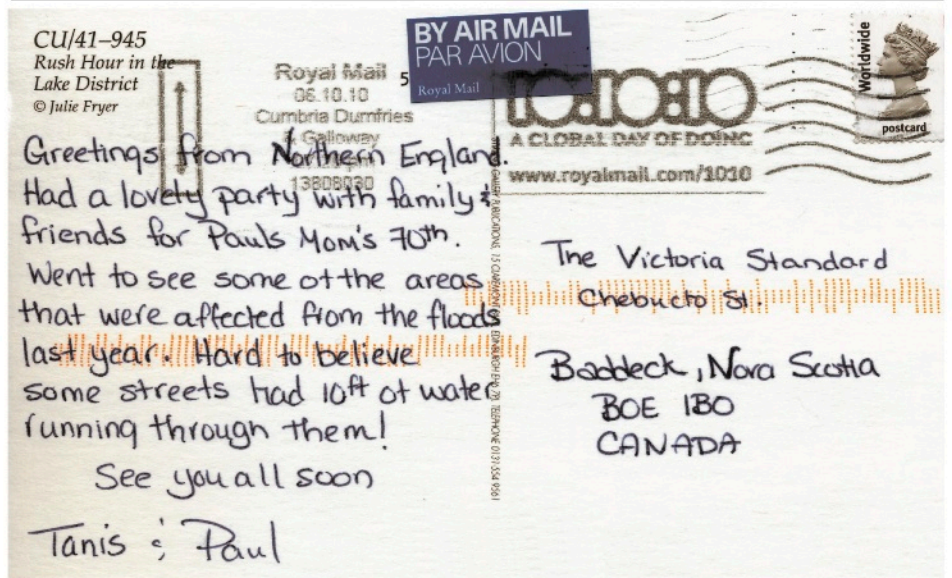 CU/41–945
Rush Hour in the
Lake District
© Julie Fryer
BY AIR MAIL
PAR AVION
Royal Mail
Royal Mail
06.10.10
Cumbria Dumfries
Galloway
13808030
5
10:10:10
A GLOBAL DAY OF DOING
www.royalmail.com/1010
Worldwide
postcard
Greetings from Northern England.
Had a lovely party with family &
friends for Pauls Mom's 70th.
Went to see some of the areas
that were affected from the floods
last year. Hard to believe
some streets had 10ft of water
running through them!
See you all soon
Tanis & Paul
PUBLICATIONS, 15 EDINBURGH TELEPHONE 0131-554 9561
The Victoria Standard
Chebucto St.
Baddeck, Nova Scotia
BOE 1BO
CANADA